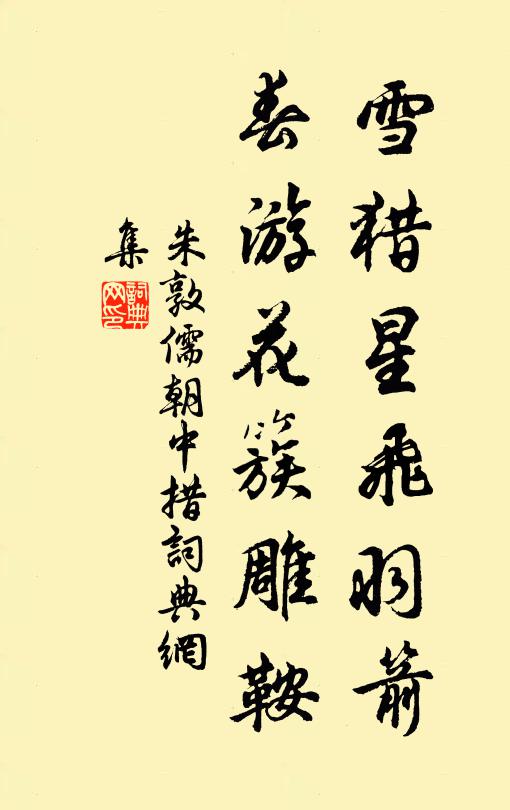 雪猎星飛羽箭
春游花簇雕鞍
朱敦儒朝中措詞典網
集
詞典
网印